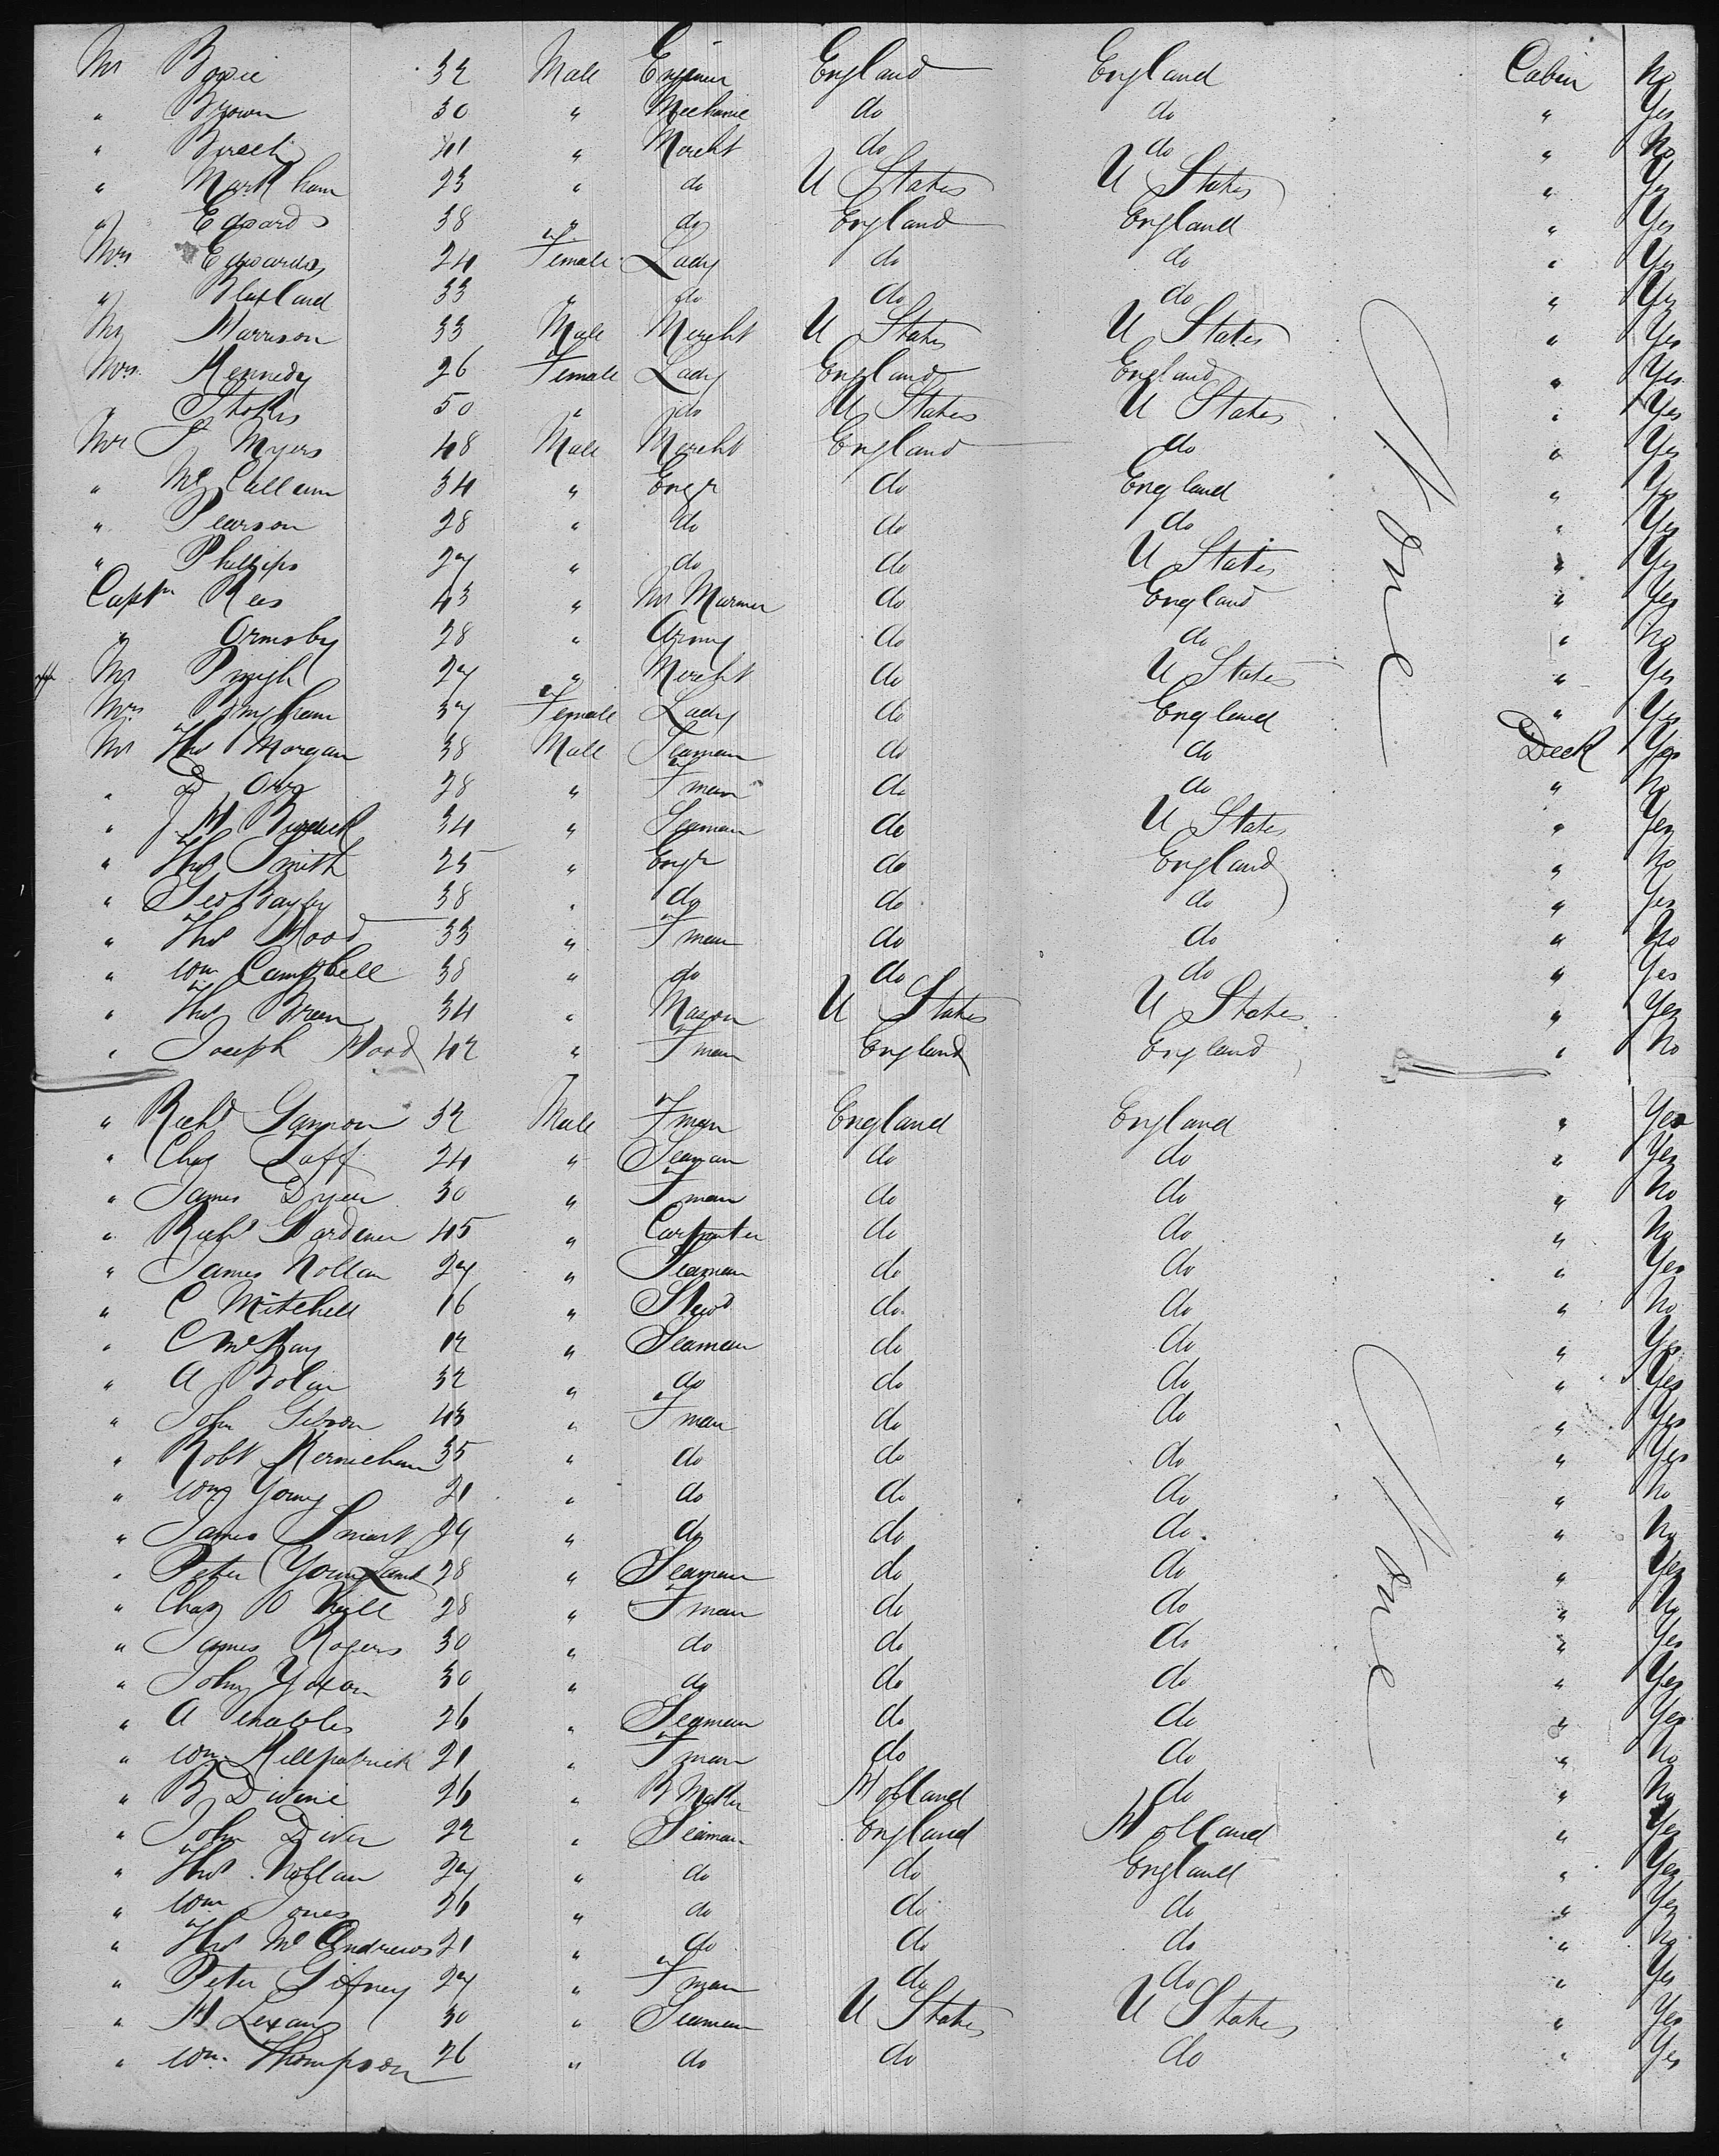 Mr Bopie 32 Male Engineer England England Cabin No
" Brown 30 " Mechanic do do " Yes
" 41 " Mercht do do " No
" Markham 23 " do U States U States " Yes
" Edwards 38 " do England England " Yes
Mrs Edwards 24 Female Lady do do " Yes
" Blaxland 33 " do do do " Yes
Mr Harrison 33 Male Mercht U States U States " Yes
Mrs Kennedy 26 Female Lady England England " Yes
" Stokes 50 " do U States U States " Yes
Mr J Myers 48 Male Mercht England do " Yes
" McCallum 34 " Engr do England " Yes
" Pearson 28 " do do do " Yes
" Phillips 27 " do do U States " Yes
Captn Rees 43 " Mr Mariner do England " Yes
" Ormsby 28 " Army do do " No
Mr Pugh 27 " Mercht do U States " Yes
Mrs Bingham 37 Female Lady do England " Yes
Mr Thos Morgan 38 Male Seaman do do Deck Yes
" D Orr 28 " Fman do do " No
" J H Burdick 34 " Seaman do U States " Yes
" Thos Smith 25 " Engr do England " No
" Geo Bayley 38 " do do do " Yes
" Thos Wood 33 " Fman do do " No
" Wm Campbell 38 " do do do " Yes
" Thos Breen 34 " Mason U States U States " Yes
" Joseph Wood 42 " Fman England England " No
None
" Richd Gannon 32 Male Fman England England " Yes
" Chas Laff 24 " Seaman do do " Yes
" James Dyer 30 " Fman do do " No
" Richd Gardener 45 " Carpenter do do " No
" James Nollan 27 " Seaman do do " Yes
" C Mitchell 16 " Stewd do do " No
" C McKay 12 " Seaman do do " Yes
" A Bolin 32 " do do do " Yes
" John Gibson 43 " Fman do do " Yes
" Robt Kernichan 35 " do do do " Yes
" Wm Young 21 " do do do " No
" James Smart 29 " do do do " No
" Peter Young Lamb 28 " Seaman do do " Yes
" Chas O Neill 28 " Fman do do " No
" James Rogers 30 " do do do " Yes
" John Yoxon 30 " do do do " Yes
" A Venables 26 " Seaman do do " Yes
" Wm Killpatrick 21 " Fman do do " No
" B Divine 26 " B Maker Holland do " No
" John Diver 22 " Seaman England Holland " Yes
" Thos Nollan 27 " do do England " Yes
" Wm Jones 26 " do do do " Yes
" Thos McAndrews 21 " do do do " No
" Peter Gifney 27 " Fman do do " Yes
" H Lexau 30 " Seaman U States U States " Yes
" Wm Thompson 26 " do do do " Yes
None